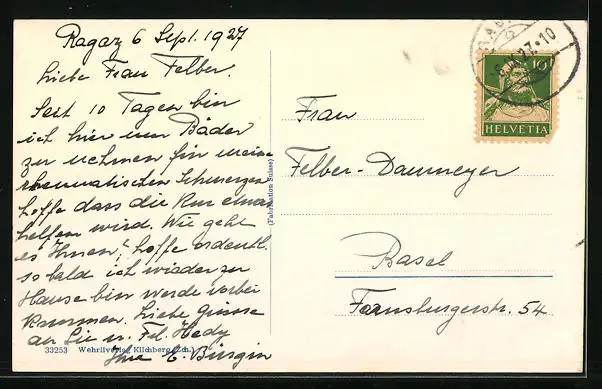 Ragaz 6 Sept. 1927
Liebe Frau Felber.
Seit 10 Tagen bin
ich hier um Bäder
zu nehmen für meine
rheumatischen Schmerzen
hoffe dass die Kur etwas
helfen wird. Wie geht
es Ihnen, hoffe ordentl.
sobald ich wieder zu
Hause bin werde vorbei
kommen. Liebe Grüsse
an Sie u. Frl. Hedy
Ihre E. Bürgin
33253 Wehrliverlag Kilchberg (Zch.)
(Fabrication Suisse)
10
HELVETIA
Frau
Felber-Daumeyer
Basel
Farnsburgerstr. 54